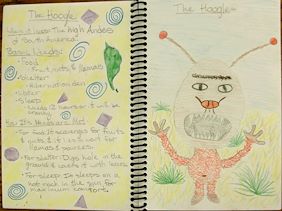 The Hoogle
Where it lives: The high Andes
of South America.
Basic Needs:
• Food
Fruit, nuts, & llamas
• Shelter
Hibernation den
• Water
• Sleep
Needs 12 hours or it will be
cranky
How It's Needs are Met:
• For food it scavenges for fruits
& nuts & it lies in wait for
llamas & pounces.
• For shelter: Digs hole in the
ground & covers it with leaves
• For sleep: It sleeps on a
hot rock in the sun for
maximum comfort.
The Hoogle